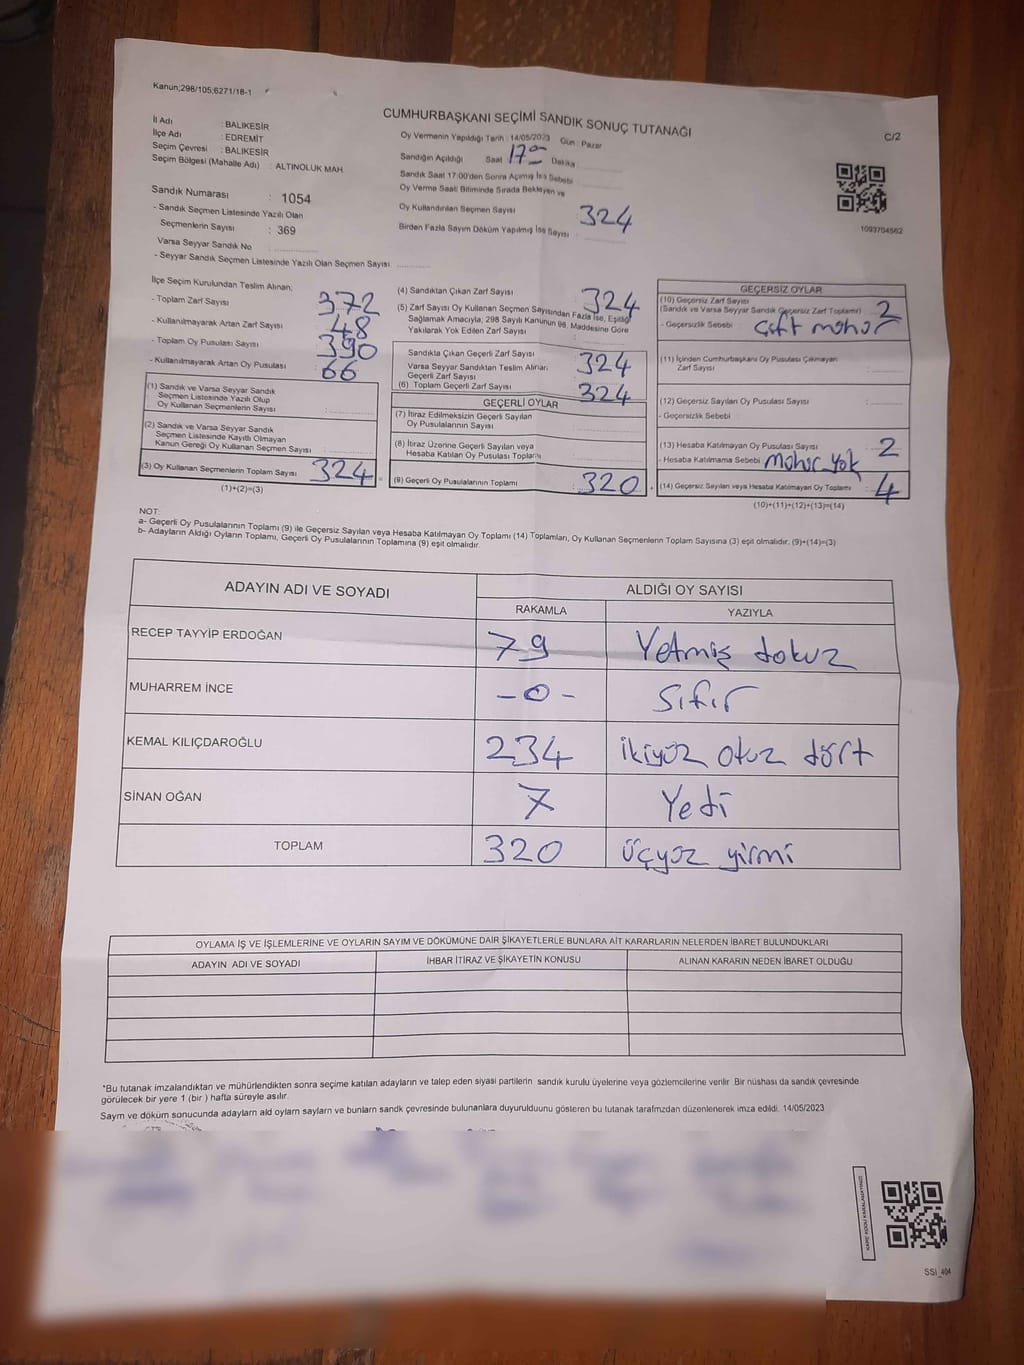 Kanun;298/105;6271/18-1
CUMHURBAŞKANI SEÇİMİ SANDIK SONUÇ TUTANAĞI
C/2
İl Adı : BALIKESİR
İlçe Adı : EDREMİT
Seçim Çevresi : BALIKESİR
Seçim Bölgesi (Mahalle Adı) : ALTINOLUK MAH.
Sandık Numarası : 1054
- Sandık Seçmen Listesinde Yazılı Olan
Seçmenlerin Sayısı : 369
Varsa Seyyar Sandık No
- Seyyar Sandık Seçmen Listesinde Yazılı Olan Seçmen Sayısı
Oy Vermenin Yapıldığı Tarih : 14/05/2023 Gün : Pazar
Sandığın Açıldığı Saat 17 00 Dakika
Sandık Saat 17:00'den Sonra Açılmış İse Sebebi
Oy Verme Saati Bitiminde Sırada Bekleyen ve
Oy Kullandırılan Seçmen Sayısı 324
Birden Fazla Sayım Döküm Yapılmış İse Sayısı
1093704562
İlçe Seçim Kurulundan Teslim Alınan:
- Toplam Zarf Sayısı 372
- Kullanılmayarak Artan Zarf Sayısı 48
- Toplam Oy Pusulası Sayısı 390
- Kullanılmayarak Artan Oy Pusulası 66
(1) Sandık ve Varsa Seyyar Sandık
Seçmen Listesinde Yazılı Olup
Oy Kullanan Seçmenlerin Sayısı
(2) Sandık ve Varsa Seyyar Sandık
Seçmen Listesinde Kayıtlı Olmayan
Kanun Gereği Oy Kullanan Seçmen Sayısı
(3) Oy Kullanan Seçmenlerin Toplam Sayısı 324
(1)+(2)=(3)
(4) Sandıktan Çıkan Zarf Sayısı 324
(5) Zarf Sayısı Oy Kullanan Seçmen Sayısından Fazla İse, Eşitliği
Sağlamak Amacıyla, 298 Sayılı Kanunun 98. Maddesine Göre
Yakılarak Yok Edilen Zarf Sayısı
Sandıkta Çıkan Geçerli Zarf Sayısı 324
Varsa Seyyar Sandıktan Teslim Alınan
Geçerli Zarf Sayısı
(6) Toplam Geçerli Zarf Sayısı 324
GEÇERLİ OYLAR
(7) İtiraz Edilmeksizin Geçerli Sayılan
Oy Pusulalarının Sayısı
(8) İtiraz Üzerine Geçerli Sayılan veya
Hesaba Katılan Oy Pusulası Toplamı
(9) Geçerli Oy Pusulalarının Toplamı : 320
GEÇERSİZ OYLAR
(10) Geçersiz Zarf Sayısı
(Sandık ve Varsa Seyyar Sandık Geçersiz Zarf Toplamı) 2
- Geçersizlik Sebebi : Çift mühür
(11) İçinden Cumhurbaşkanı Oy Pusulası Çıkmayan
Zarf Sayısı
(12) Geçersiz Sayılan Oy Pusulası Sayısı
- Geçersizlik Sebebi :
(13) Hesaba Katılmayan Oy Pusulası Sayısı 2
- Hesaba Katılmama Sebebi mühür yok
(14) Geçersiz Sayılan veya Hesaba Katılmayan Oy Toplamı 4
(10)+(11)+(12)+(13)=(14)
NOT:
a- Geçerli Oy Pusulalarının Toplamı (9) ile Geçersiz Sayılan veya Hesaba Katılmayan Oy Toplamı (14) Toplamları, Oy Kullanan Seçmenlerin Toplam Sayısına (3) eşit olmalıdır. (9)+(14)=(3)
b- Adayların Aldığı Oyların Toplamı, Geçerli Oy Pusulalarının Toplamına (9) eşit olmalıdır.
ADAYIN ADI VE SOYADI
ALDIĞI OY SAYISI
RAKAMLA YAZIYLA
RECEP TAYYİP ERDOĞAN 79 Yetmiş dokuz
MUHARREM İNCE -0- Sıfır
KEMAL KILIÇDAROĞLU 234 ikiyüz otuz dört
SİNAN OĞAN 7 Yedi
TOPLAM 320 üçyüz yirmi
OYLAMA İŞ VE İŞLEMLERİNE VE OYLARIN SAYIM VE DÖKÜMÜNE DAİR ŞİKAYETLERLE BUNLARA AİT KARARLARIN NELERDEN İBARET BULUNDUKLARI
ADAYIN ADI VE SOYADI İHBAR İTİRAZ VE ŞİKAYETİN KONUSU ALINAN KARARIN NEDEN İBARET OLDUĞU
*Bu tutanak imzalandıktan ve mühürlendikten sonra seçime katılan adayların ve talep eden siyasi partilerin sandık kurulu üyelerine veya gözlemcilerine verilir. Bir nüshası da sandık çevresinde
görülecek bir yere 1 (bir) hafta süreyle asılır.
Sayım ve döküm sonucunda adayların ald oyların sayları ve bunların sandk çevresinde bulunanlara duyurulduunu gösteren bu tutanak tarafmzdan düzenlenerek imza edildi. 14/05/2023
KARE KODU KARALAMAYINIZ!
SSİ_404